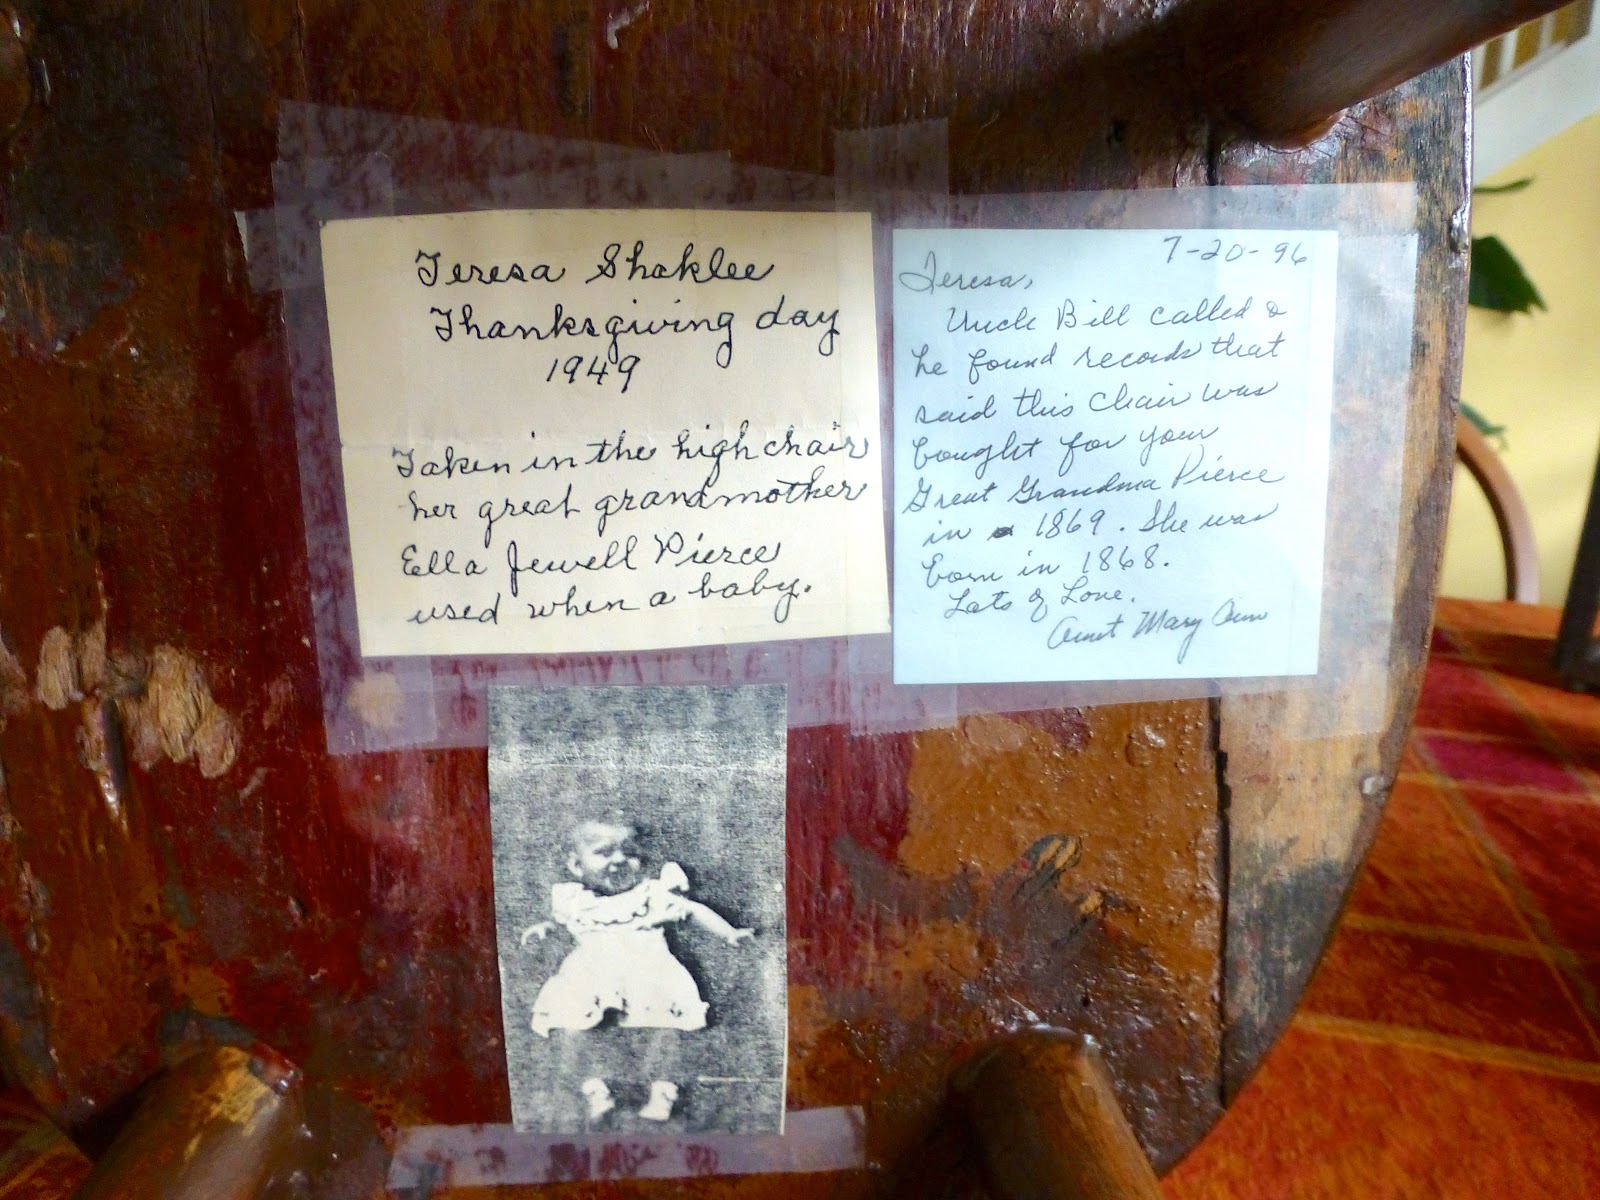 Teresa Shaklee
Thanksgiving day
1949
Taken in the high chair
her great grandmother
Ella Jewell Pierce
used when a baby.
7-20-96
Teresa,
Uncle Bill called &
he found records that
said this chair was
bought for your
Great Grandma Pierce
in 1869. She was
born in 1868.
Lots of Love.
Aunt Mary Ann